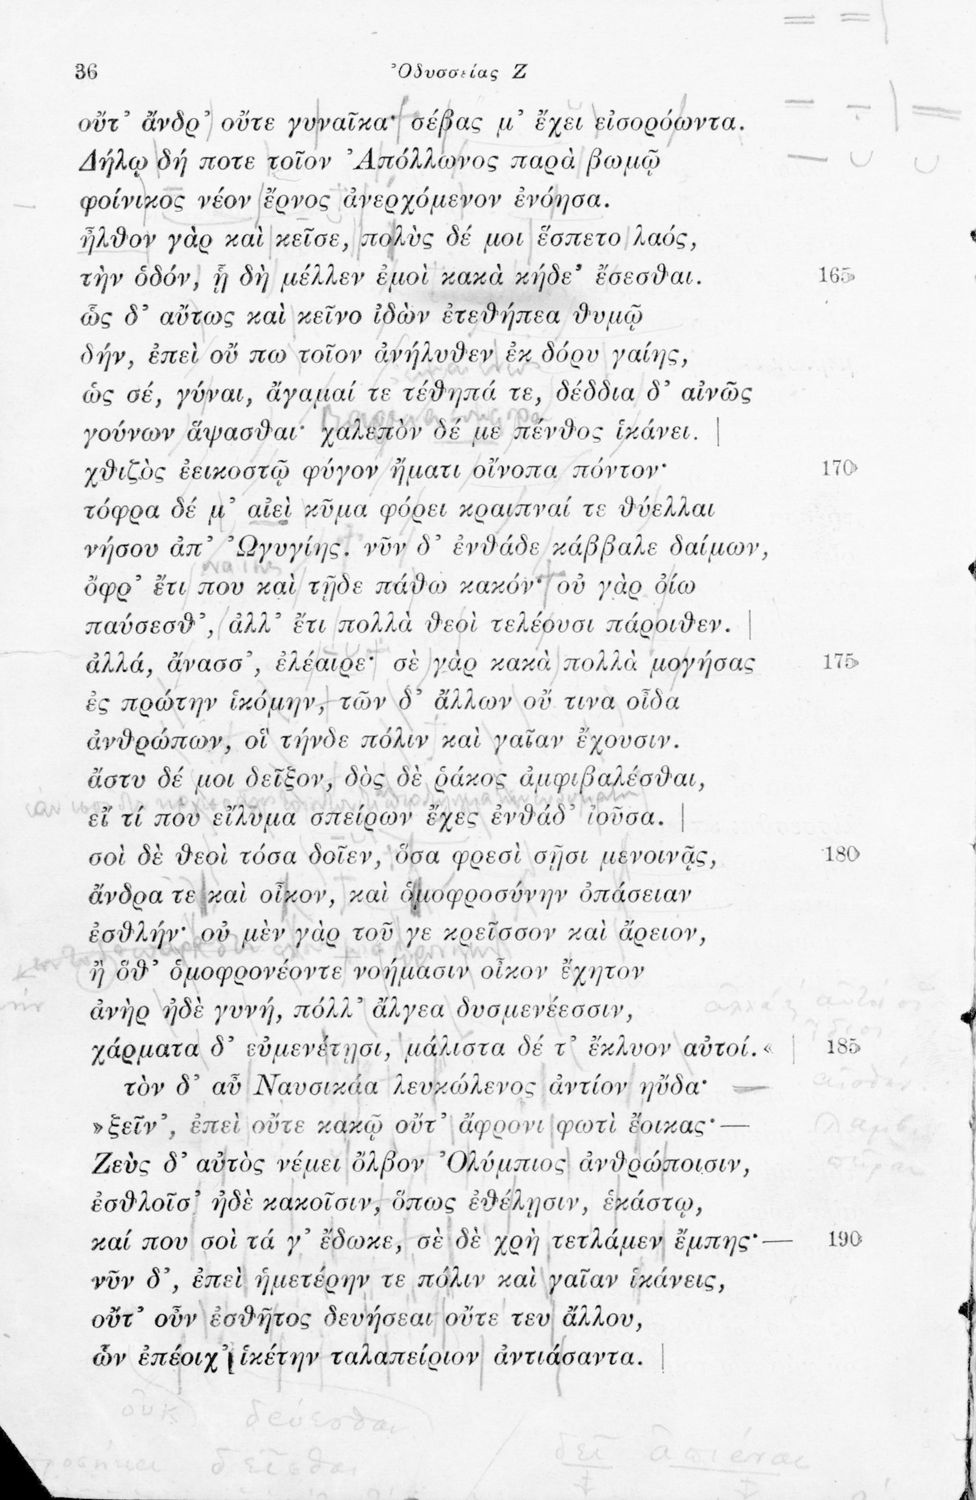 36 Ὀδυσσείας Ζ
οὔτ’ ἄνδρ’ οὔτε γυναῖκα· σέβας μ’ ἔχει εἰσορόωντα.
Δήλῳ δή ποτε τοῖον Ἀπόλλωνος παρὰ βωμῷ
φοίνικος νέον ἔρνος ἀνερχόμενον ἐνόησα.
ἦλθον γὰρ καὶ κεῖσε, πολὺς δέ μοι ἕσπετο λαός,
τὴν ὁδόν, ᾗ δὴ μέλλεν ἐμοὶ κακὰ κήδε’ ἔσεσθαι. 165
ὣς δ’ αὔτως καὶ κεῖνο ἰδὼν ἐτεθήπεα θυμῷ
δήν, ἐπεὶ οὔ πω τοῖον ἀνήλυθεν ἐκ δόρυ γαίης,
ὡς σέ, γύναι, ἄγαμαί τε τέθηπά τε, δέδδια δ’ αἰνῶς
γούνων ἅψασθαι· χαλεπὸν δέ με πένθος ἱκάνει.
χθιζὸς ἐεικοστῷ φύγον ἤματι οἴνοπα πόντον· 170
τόφρα δέ μ’ αἰεὶ κῦμα φόρει κραιπναί τε θύελλαι
νήσου ἀπ’ Ὠγυγίης. νῦν δ’ ἐνθάδε κάββαλε δαίμων,
ὄφρ’ ἔτι που καὶ τῇδε πάθω κακόν· οὐ γὰρ ὀίω
παύσεσθ’, ἀλλ’ ἔτι πολλὰ θεοὶ τελέουσι πάροιθεν.
ἀλλά, ἄνασσ’, ἐλέαιρε· σὲ γὰρ κακὰ πολλὰ μογήσας 175
ἐς πρώτην ἱκόμην, τῶν δ’ ἄλλων οὔ τινα οἶδα
ἀνθρώπων, οἳ τήνδε πόλιν καὶ γαῖαν ἔχουσιν.
ἄστυ δέ μοι δεῖξον, δὸς δὲ ῥάκος ἀμφιβαλέσθαι,
εἴ τί που εἴλυμα σπείρων ἔχες ἐνθάδ’ ἰοῦσα.
σοὶ δὲ θεοὶ τόσα δοῖεν, ὅσα φρεσὶ σῇσι μενοινᾷς, 180
ἄνδρα τε καὶ οἶκον, καὶ ὁμοφροσύνην ὀπάσειαν
ἐσθλήν· οὐ μὲν γὰρ τοῦ γε κρεῖσσον καὶ ἄρειον,
ἢ ὅθ’ ὁμοφρονέοντε νοήμασιν οἶκον ἔχητον
ἀνὴρ ἠδὲ γυνή, πόλλ’ ἄλγεα δυσμενέεσσιν,
χάρματα δ’ εὐμενέτῃσι, μάλιστα δέ τ’ ἔκλυον αὐτοί.« 185
τὸν δ’ αὖ Ναυσικάα λευκώλενος ἀντίον ηὔδα·
»ξεῖν’, ἐπεὶ οὔτε κακῷ οὔτ’ ἄφρονι φωτὶ ἔοικας· —
Ζεὺς δ’ αὐτὸς νέμει ὄλβον Ὀλύμπιος ἀνθρώποισιν,
ἐσθλοῖσ’ ἠδὲ κακοῖσιν, ὅπως ἐθέλῃσιν, ἑκάστῳ,
καί που σοὶ τά γ’ ἔδωκε, σὲ δὲ χρὴ τετλάμεν ἔμπης· — 190
νῦν δ’, ἐπεὶ ἡμετέρην τε πόλιν καὶ γαῖαν ἱκάνεις,
οὔτ’ οὖν ἐσθῆτος δευήσεαι οὔτε τευ ἄλλου,
ὧν ἐπέοιχ’ ἱκέτην ταλαπείριον ἀντιάσαντα.
οὐκ δεύεσθαι
δεῖσθαι δεῖ ἀπιέναι